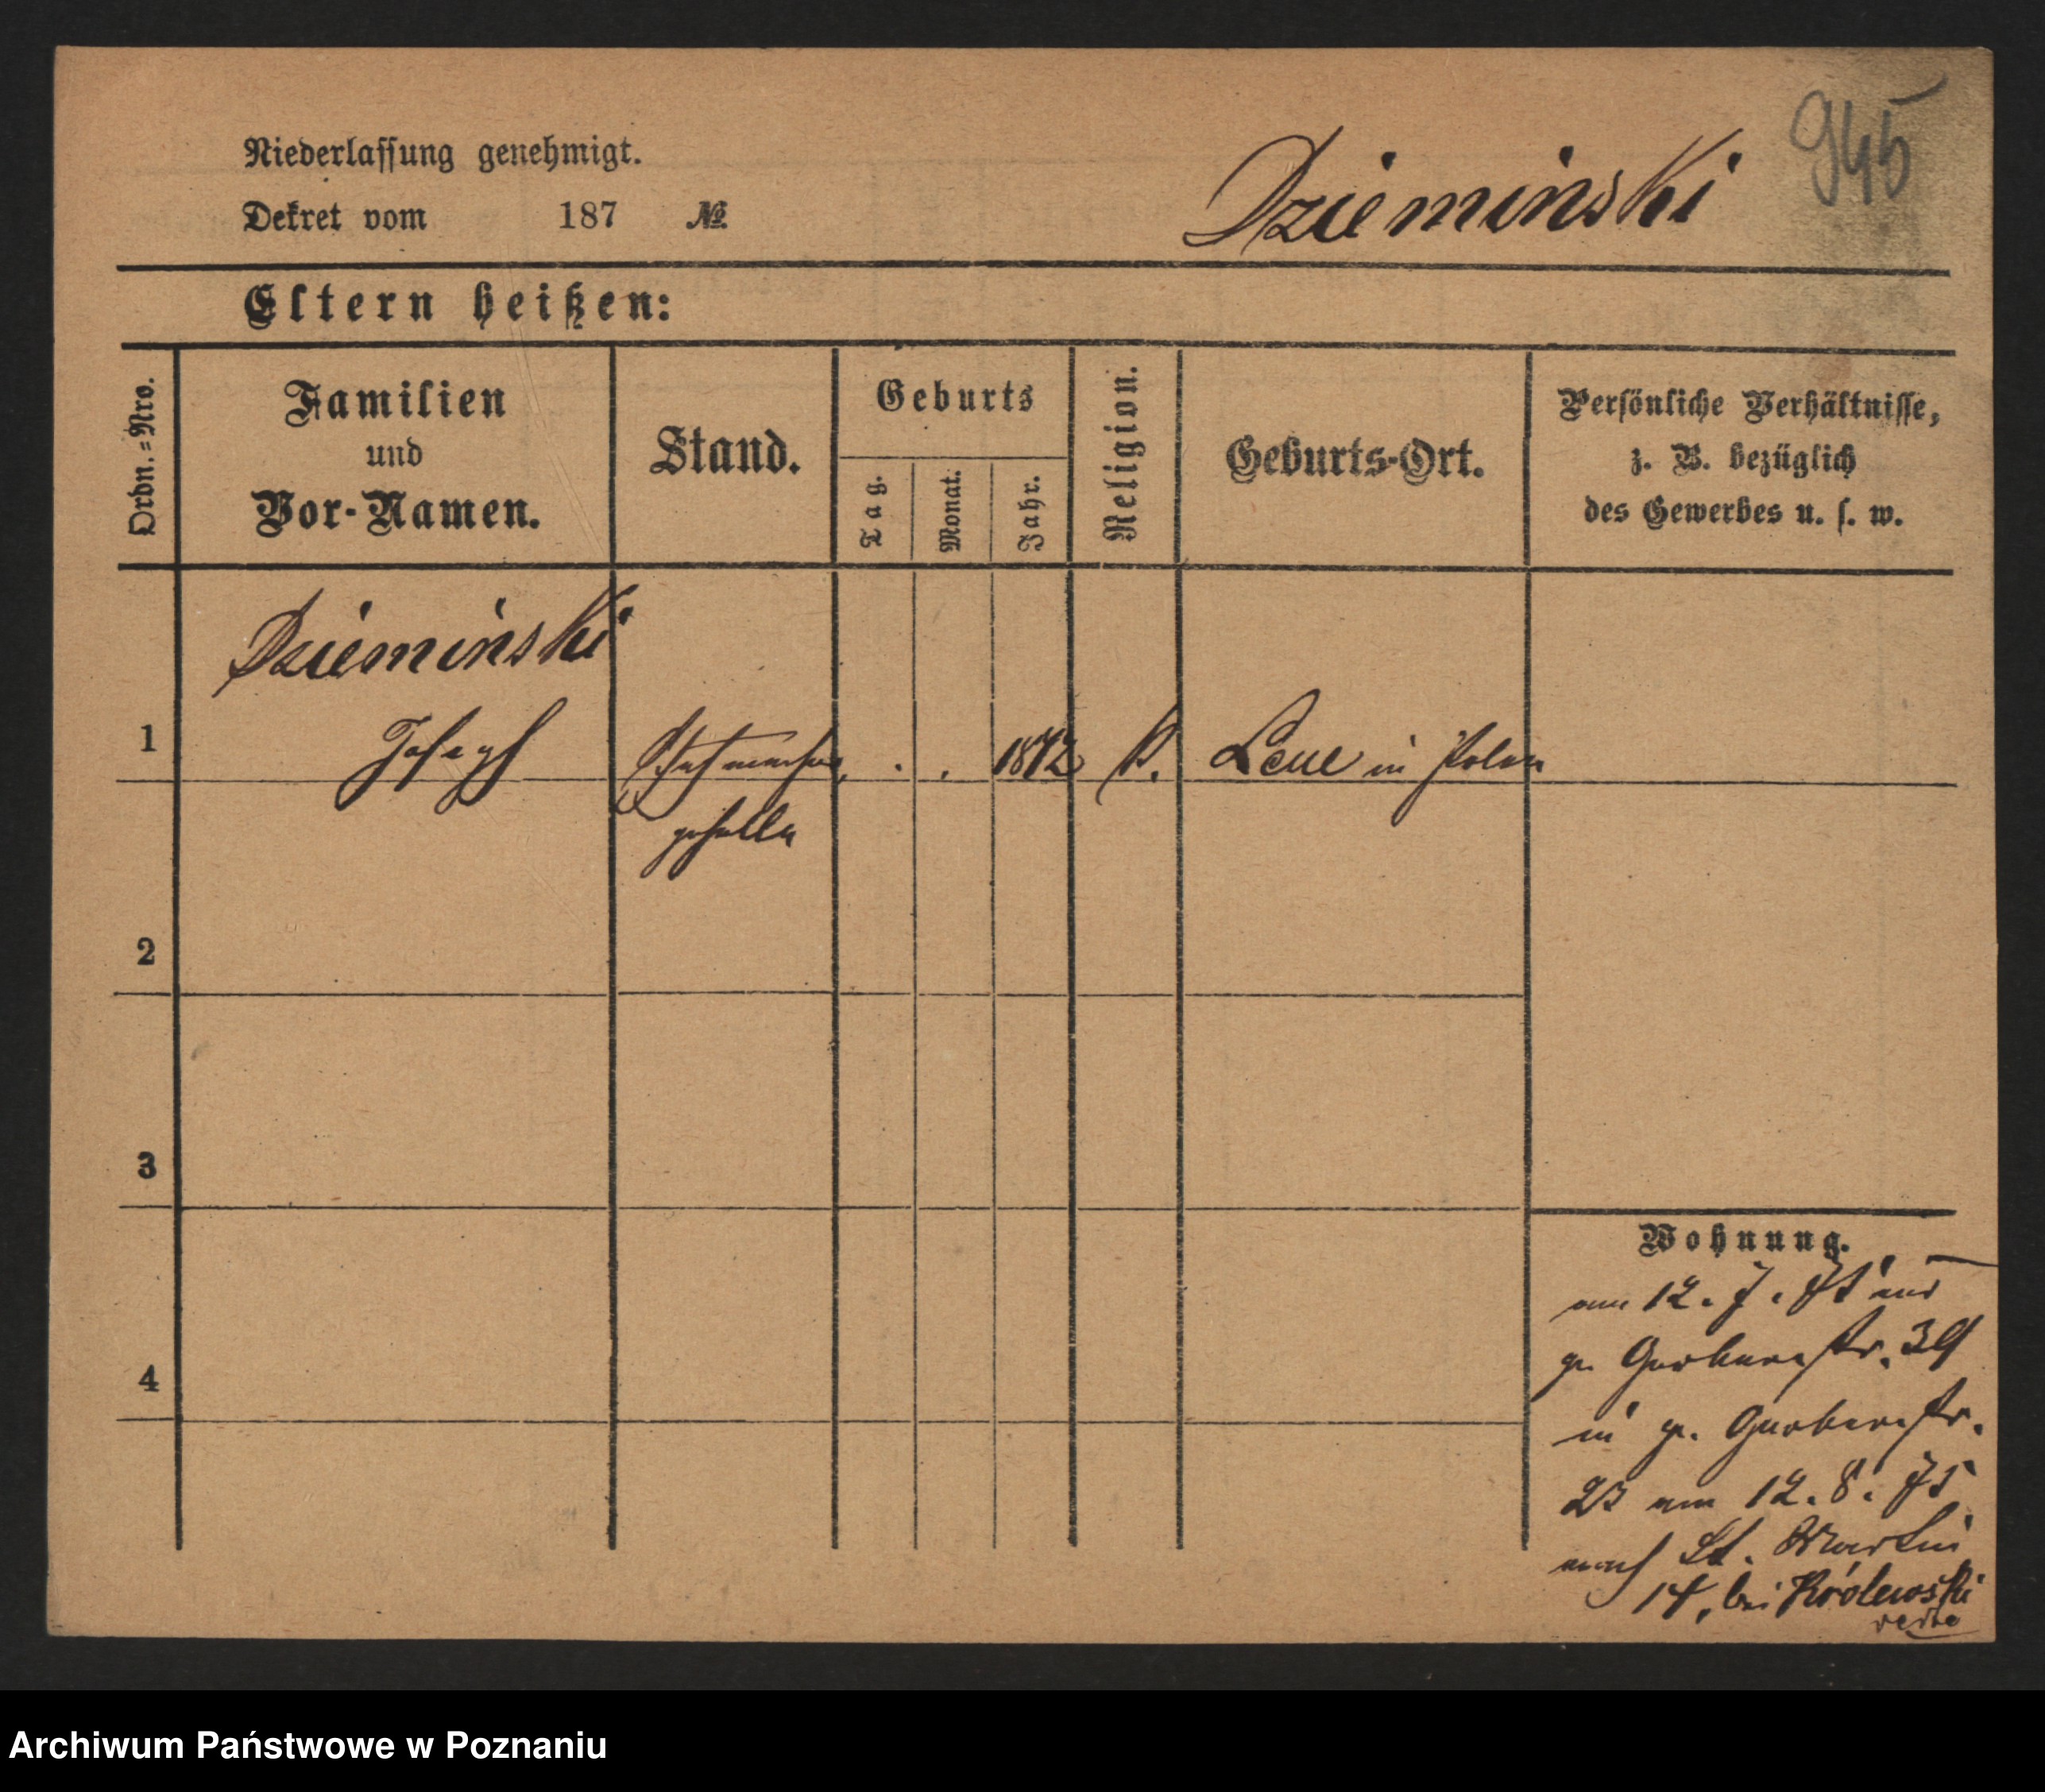 945
Niederlassung genehmigt.
Dekret vom 187 №
Dzieminski
Eltern heißen:
Ordn.=Nro.
Familien
und
Vor-Namen.
Stand.
Geburts
Tag.
Monat.
Jahr.
Religion.
Geburts-Ort.
Persönliche Verhältnisse,
z. B. bezüglich
des Gewerbes u. s. w.
Dzieminski
1 Joseph 18 K. in Polen
geselle
2
3
4
Wohnung.
am 12. 7. 75 aus
gr. Gerberstr. 39
in gr. Gerberstr.
23 am 12. 8. 75
nach St. Martin
14, bei Królewski
Archiwum Państwowe w Poznaniu